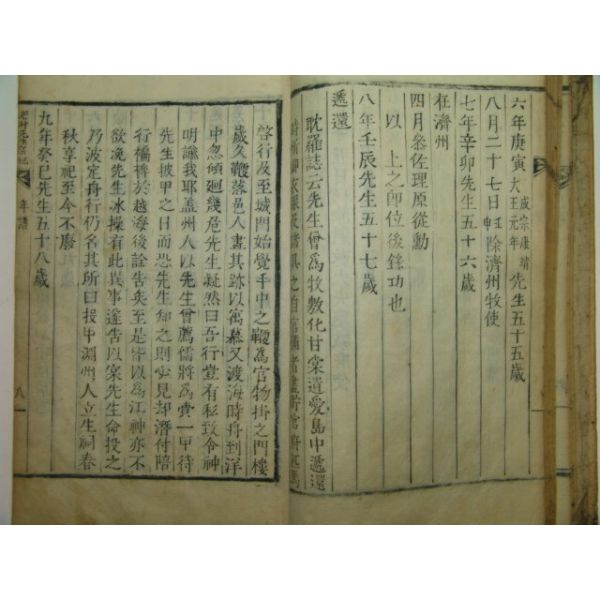 六年庚寅成宗康靖大王元年先生五十五歲
八月二十七日壬申除濟州牧使
七年辛卯先生五十六歲
在濟州
四月叅佐理原從勳
以 上之卽位後錄功也
八年壬辰先生五十七歲
遞還
耽羅誌云先生曾爲牧敎化甘棠遺愛島中遞還
時所御衣服及諸具之自官
啓行及至城門始覺手中之鞭爲官物掛之門樓
歲久鞭落邑人畵其跡以寓慕又渡海時舟到洋
中忽傾廻幾危先生凝然曰吾行豈有私致令神
明譴我耶盖州人以先生曾薦儒將爲賫一甲待
先生披甲之日而恐先生却之則見却潛付陪
行褊裨於越海後詮告矣至是皆以爲江神亦不
欲浼先生冰操有此異事遂告以案先生命投之
乃波定舟行仍名其所曰投甲淵州人立生祠春
秋享祀至今不廢
九年癸巳先生五十八歲
年譜
八